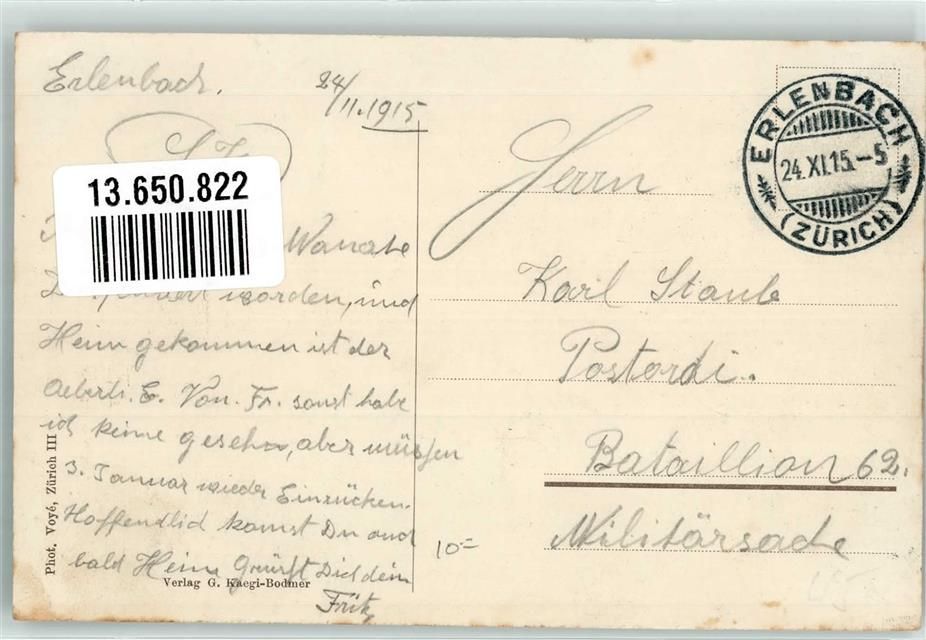 Erlenbach. 24/11.1915
13.650.822
Wanate
worden, und
Heim gekommen ist der
Aeberli. E. Von. Fr. sonst habe
ich keine gesehn, aber müssen
3. Januar wieder Einrücken.
Hoffendlid komst Du aud
bald Heim Grüsst Did dein
Fritz
Phot. Voyé, Zürich III
Verlag G. Kaegi-Bodmer
ERLENBACH
24.XI.15.-5
(ZÜRICH)
Herrn
Karl Staub
Postordi.
Bataillion 62.
Militärsache
10.=